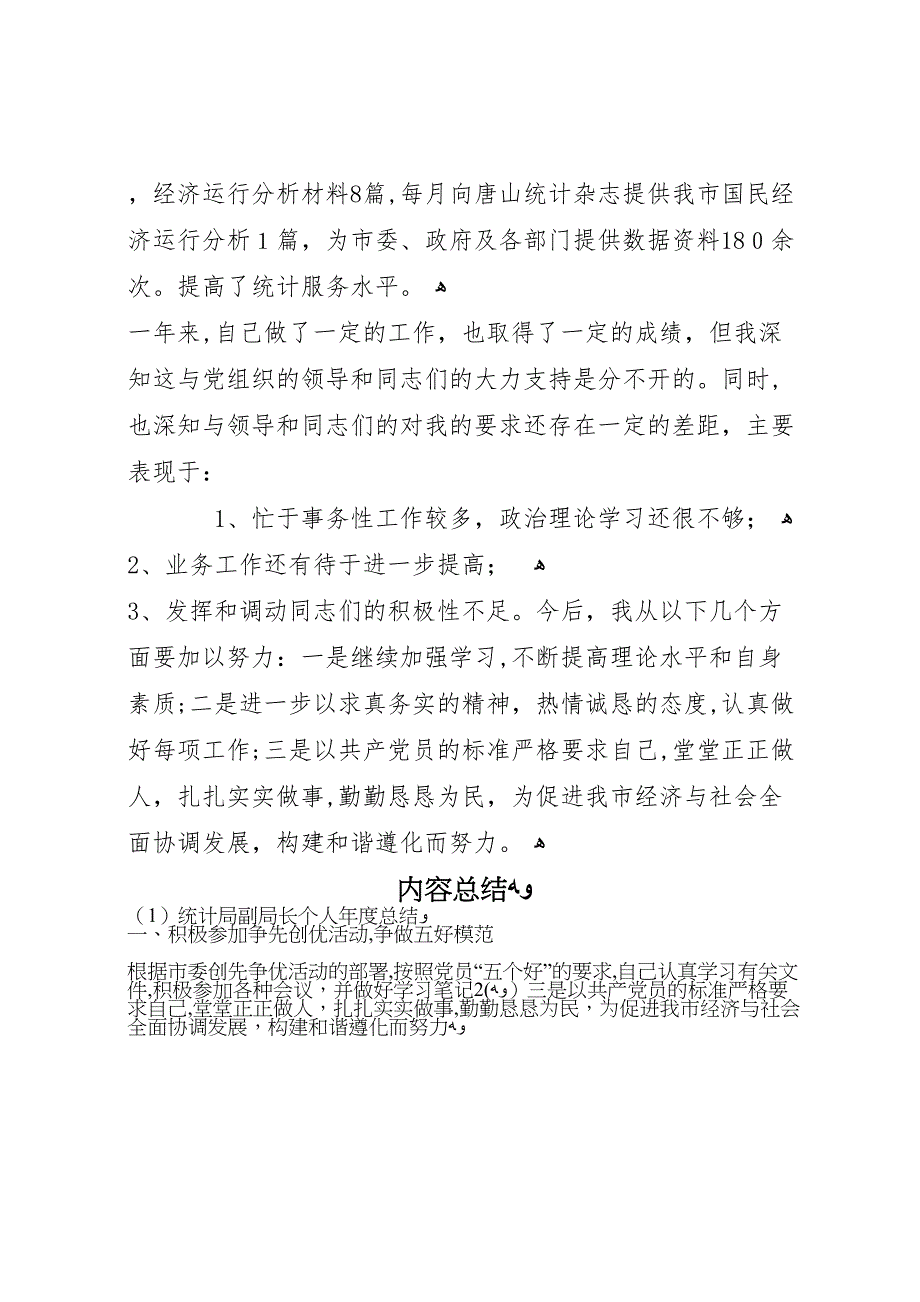 ，经济运行分析材料8篇,每月向唐山统计杂志提供我市国民经
济运行分析１篇，为市委、政府及各部门提供数据资料18０余
次。提高了统计服务水平。 ﻫ
一年来,自己做了一定的工作，也取得了一定的成绩，但我深
知这与党组织的领导和同志们的大力支持是分不开的。同时,
也深知与领导和同志们的对我的要求还存在一定的差距，主要
表现于：
1、忙于事务性工作较多，政治理论学习还很不够； ﻫ
2、业务工作还有待于进一步提高； ﻫ
3、发挥和调动同志们的积极性不足。今后，我从以下几个方
面要加以努力：一是继续加强学习,不断提高理论水平和自身
素质;二是进一步以求真务实的精神，热情诚恳的态度,认真做
好每项工作;三是以共产党员的标准严格要求自己,堂堂正正做
人，扎扎实实做事,勤勤恳恳为民，为促进我市经济与社会全
面协调发展，构建和谐遵化而努力。 ﻫ
内容总结ﻪﻭ
（1）统计局副局长个人年度总结ﻭ
一、积极参加争先创优活动,争做五好模范
根据市委创先争优活动的部署,按照党员“五个好”的要求,自己认真学习有关文
件,积极参加各种会议，并做好学习笔记2(ﻪﻭ）三是以共产党员的标准严格要
求自己,堂堂正正做人，扎扎实实做事,勤勤恳恳为民，为促进我市经济与社会
全面协调发展，构建和谐遵化而努力ﻪﻭ